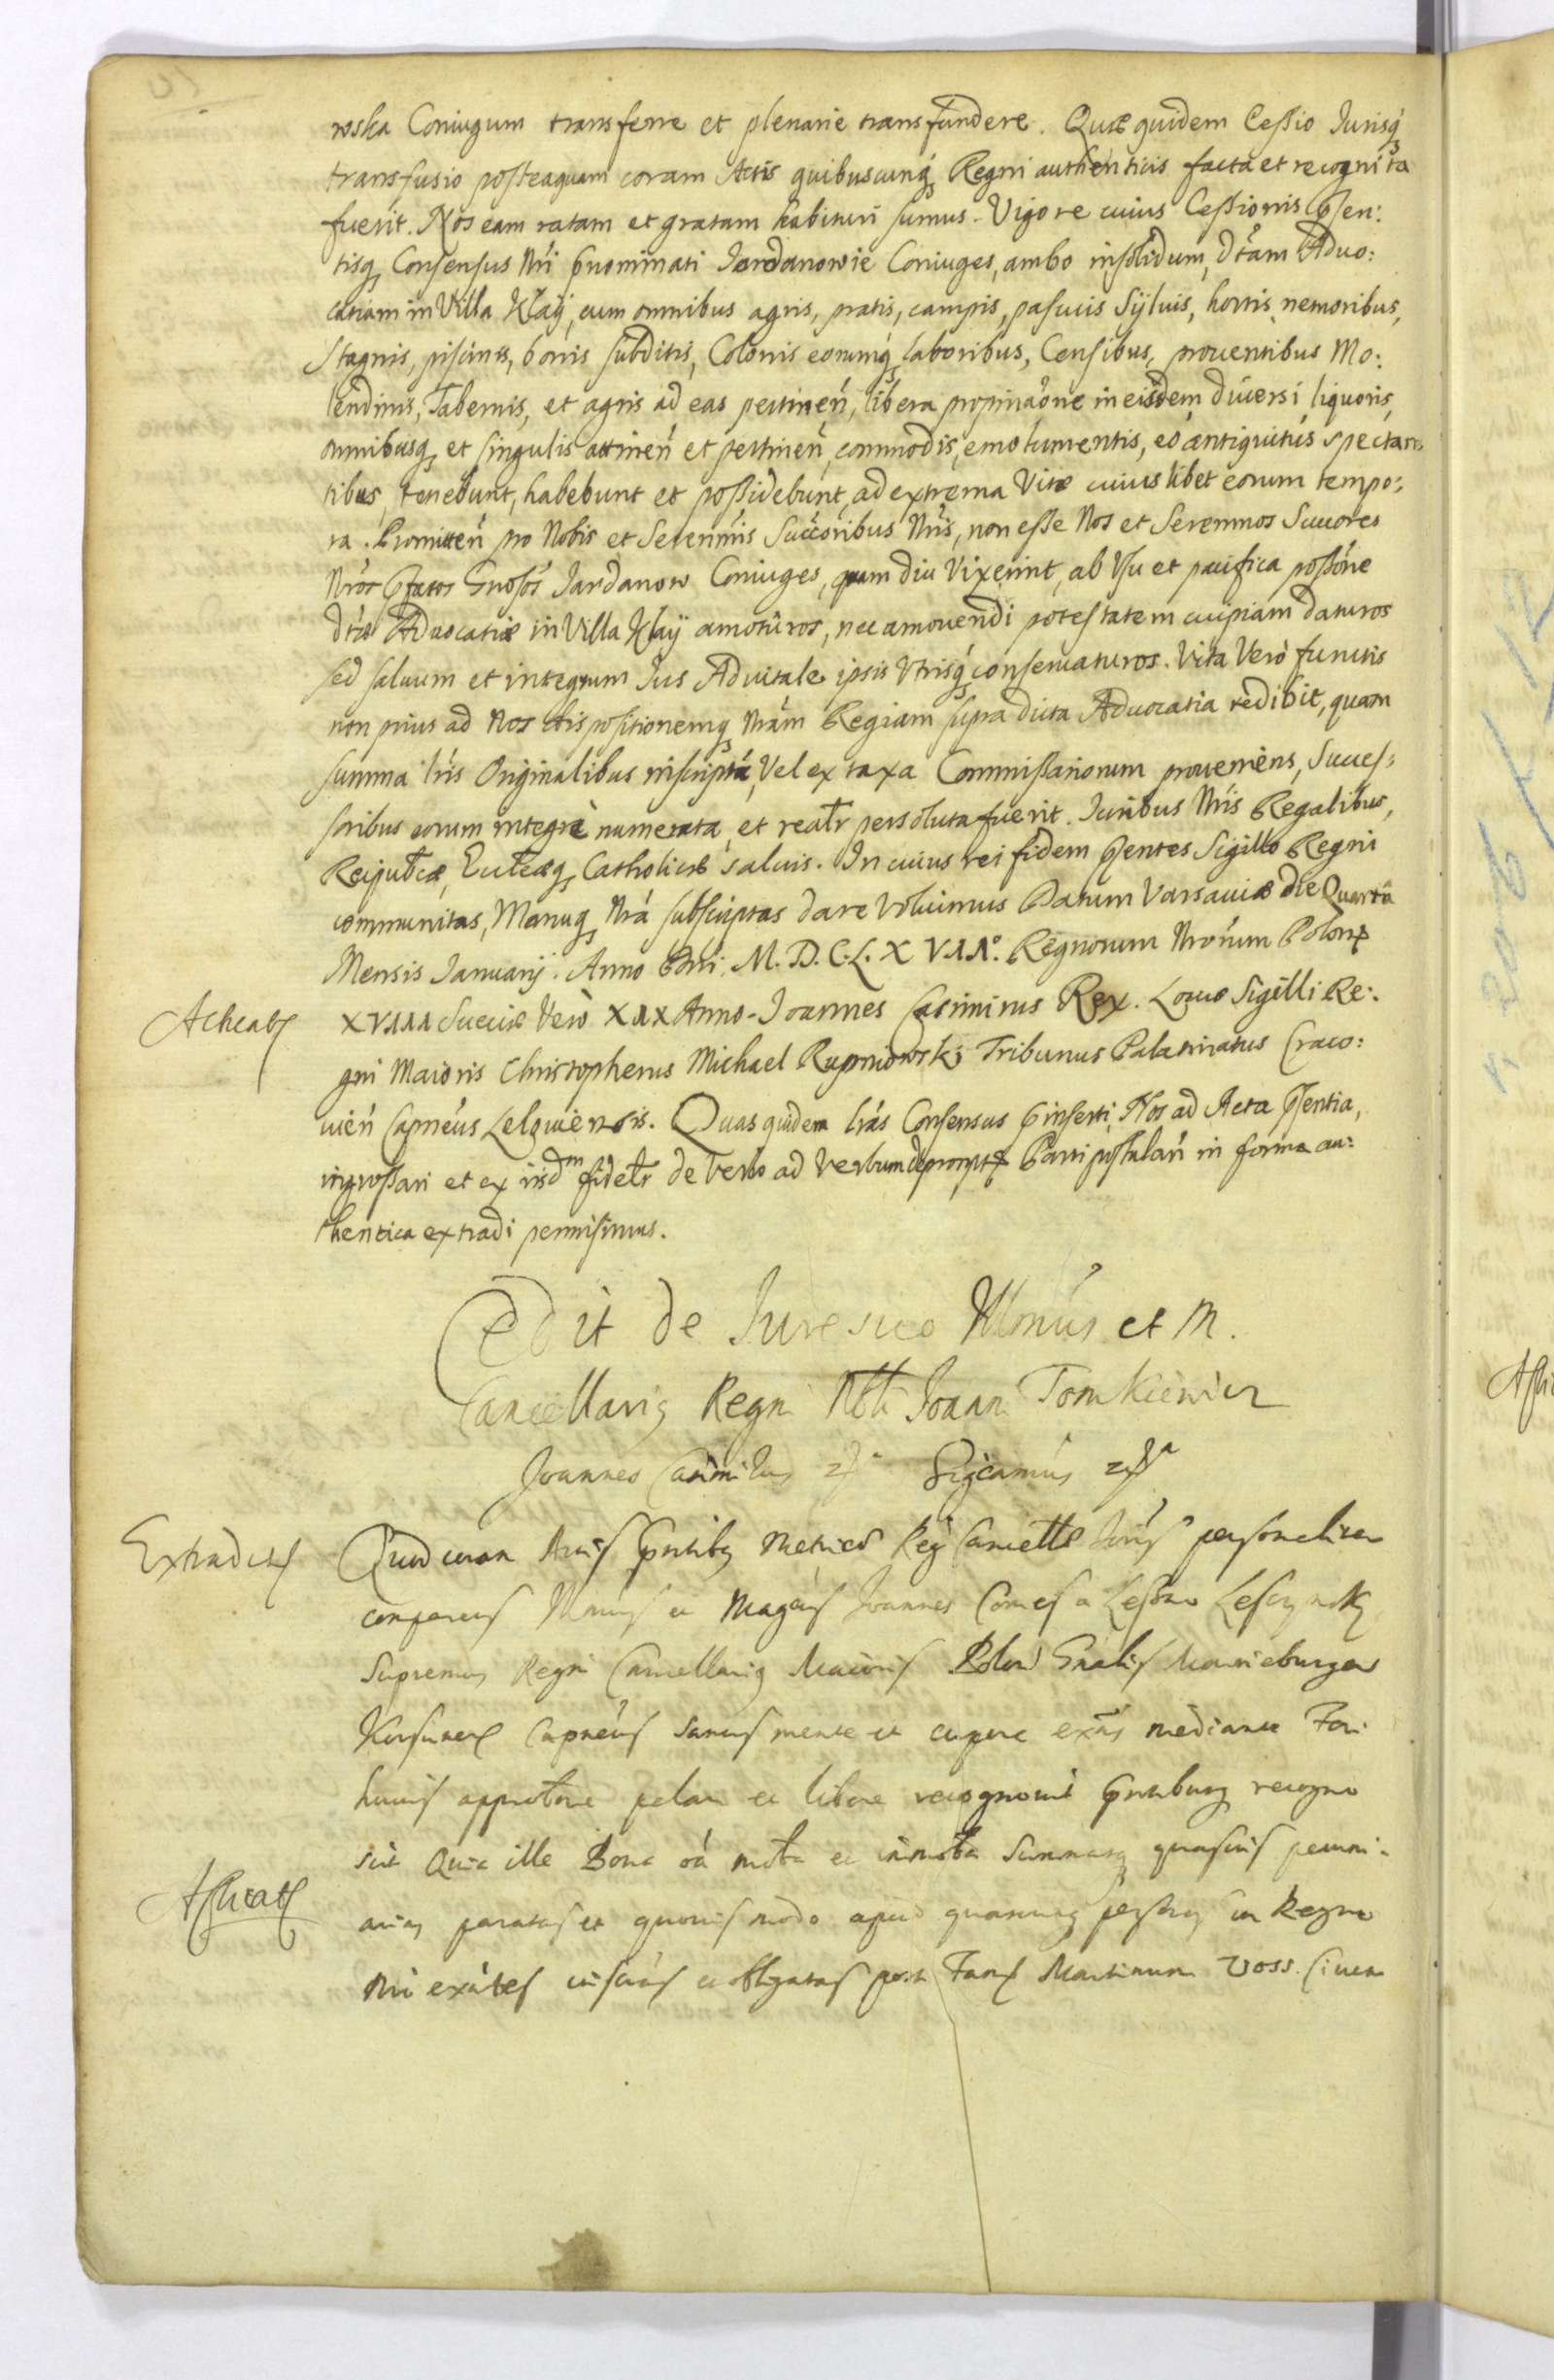 wska Coniugum transferre et plenarie transfundere. Quæ quidem Cessio Jurisq́
transfusio posteaquam coram Actis quibuscunq́ Regni authenticis facta et recognita
fuerit. Nos eam ratam et gratam habituri sumus. Vigore cuius Cessionis psen:
tisq Consensus Nri pnominati Jordanowie Coniuges, ambo insolidum, Dtam Aduo:
catiam in Villa Kłaÿ, cum omnibus agris, pratis, campis, pascuis Syluis, hortis nemoribus,
Stagnis, piscinis, bonis subditis, Colonis eorumq́ laboribus, Censibus, prouentibus Mo:
lendinis, Tabernis, et agris ad eas pertineń, libera propinaōne in eisdem diuersi liquoris,
omnibusq et singulis attineń et pertineń, commodis, emolumentis, eo antiquitus spectan
tibus, tenebunt, habebunt et possidebunt, ad extrema Vitæ cuiuslibet eorum tempo:
ra. Promitteń pro Nobis et Serenmis Succoribus Nris, non esse Nos et Serenmos Succores
Nros pfatos Gnosos Jardanow Coniuges, quam diu Vixerint, ab Vsu et pacifica possone
dtæ Aduocatiæ in Villa Kłaÿ amoturos, nec amouendi potestatem cuipiam daturos
sed saluum et integrum Jus Aduitale ipsis Vtrisq́ conseruaturos. Vita Vero functis
non prius ad Nos dispositionemq Nram Regiam supra dicta Aduocatia redibit, quam
summa lris Originalibus inscripta, Vel ex taxa Commissariorum proueniens, Succes:
soribus eorum integrè numerata, et realr persoluta fuerit. Juribus Nris Regalibus,
Reiputcæ, Ecclæq Catholicæ saluis. In cuius rei fidem psentes Sigillo Regni
communitas, Manuq Nra subscriptas dare Voluimus Datum Varsauiæ die Quarta
Mensis Januarij. Anno Dni. M.D.C.L.XVII°. Regnorum Nrorum Poloniæ
Acticat
XVIII Sueciæ Vero XIX Anno. Joannes Casimirus Rex. Locus Sigilli Re:
gni Maioris Christopherus Michael Rupniowski Tribunus Palatinatus Craco:
uień Capneus Lelouiensis. Quas quidem lras Consensus pinserti, Nos ad Acta psentia,
ingrossari et ex iisdm fidelr de verbo ad Verbum depromptæ Parti postulań in forma au:
thentica extradi permisimus.
Cedit de Jure suo Illmus et M.
Cancellarig Regni Nbli Joanni Tomkiewicz
Joannes Casimirus
Sigcamus
Extradit
Quod coram Actis pntibg Metrices Reg Cancellæ personaliter
comparens Illmus et Magcus Joannes Comes a Lesno Lesczynski
Supremus Regni Cancellarig Maioris Gnalis Marieburgen
Korsunen Capneus sanus mente et corpore exns mediante
huius palam et libere recognouit pntibusq recogno
scit Quia ille Bona oa mobta et inmobta Summasq quasuis pecuni-
Acticat
arias paratas et quouis modo apud quascunq personas in Regno
Nri exntes inscriptas et obligatas post Martinum Voss Ciuem